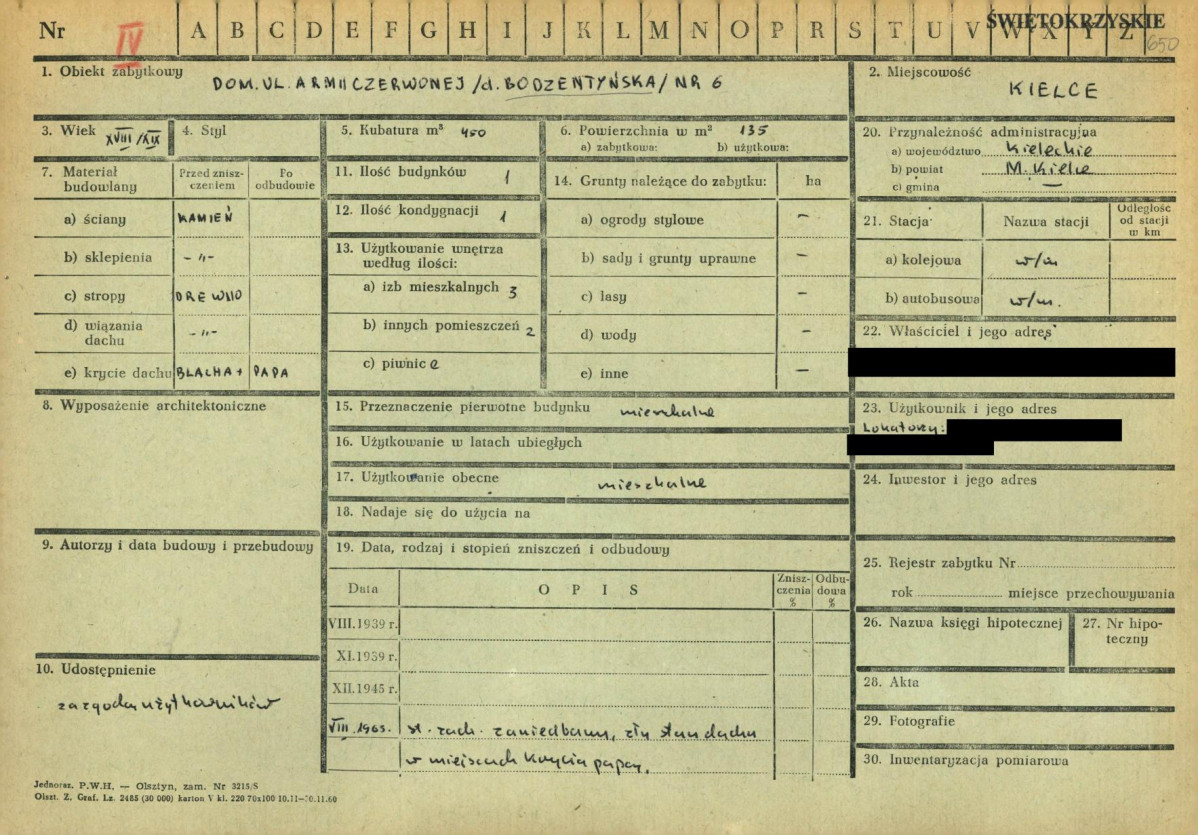 Nr IV A B C D E F G H I J K L M N O P R S T U V W X Y Z ŚWIĘTOKRZYSKIE
650
1. Obiekt zabytkowy
DOM. UL. ARMII CZERWONEJ /d. BODZENTYŃSKA/ NR 6
2. Miejscowość
KIELCE
3. Wiek XVIII/XIX
4. Styl
5. Kubatura m³ 450
6. Powierzchnia w m² 135
a) zabytkowa: b) użytkowa:
7. Materiał budowlany
Przed zniszczeniem
Po odbudowie
a) ściany KAMIEŃ
b) sklepienia -"-
c) stropy DREWNO
d) wiązania dachu -"-
e) krycie dachu BLACHA + PAPA
8. Wyposażenie architektoniczne
9. Autorzy i data budowy i przebudowy
10. Udostępnienie
za zgodą użytkowników
11. Ilość budynków 1
12. Ilość kondygnacji 1
13. Użytkowanie wnętrza według ilości:
a) izb mieszkalnych 3
b) innych pomieszczeń 2
c) piwnic
14. Grunty należące do zabytku: ha
a) ogrody stylowe –
b) sady i grunty uprawne –
c) lasy –
d) wody –
e) inne –
15. Przeznaczenie pierwotne budynku mieszkalne
16. Użytkowanie w latach ubiegłych
17. Użytkowanie obecne mieszkalne
18. Nadaje się do użycia na
19. Data, rodzaj i stopień zniszczeń i odbudowy
Data O P I S Zniszczenia % Odbudowa %
VIII.1939 r.
XI.1939 r.
XII.1945 r.
VIII.1963. st. zach. zaniedbany, zły stan dachu
w miejscach krycia papą.
20. Przynależność administracyjna
a) województwo Kieleckie
b) powiat M. Kielce
c) gmina —
21. Stacja Nazwa stacji Odległość od stacji w km
a) kolejowa w/m
b) autobusowa w/m.
22. Właściciel i jego adres
23. Użytkownik i jego adres
Lokatorzy:
24. Inwestor i jego adres
25. Rejestr zabytku Nr
rok miejsce przechowywania
26. Nazwa księgi hipotecznej
27. Nr hipoteczny
28. Akta
29. Fotografie
30. Inwentaryzacja pomiarowa
Jednoraz. P.W.H. — Olsztyn, zam. Nr 3215/S
Olszt. Z. Graf. Lz. 2485 (30 000) karton V kl. 220 70x100 10.11—30.11.60